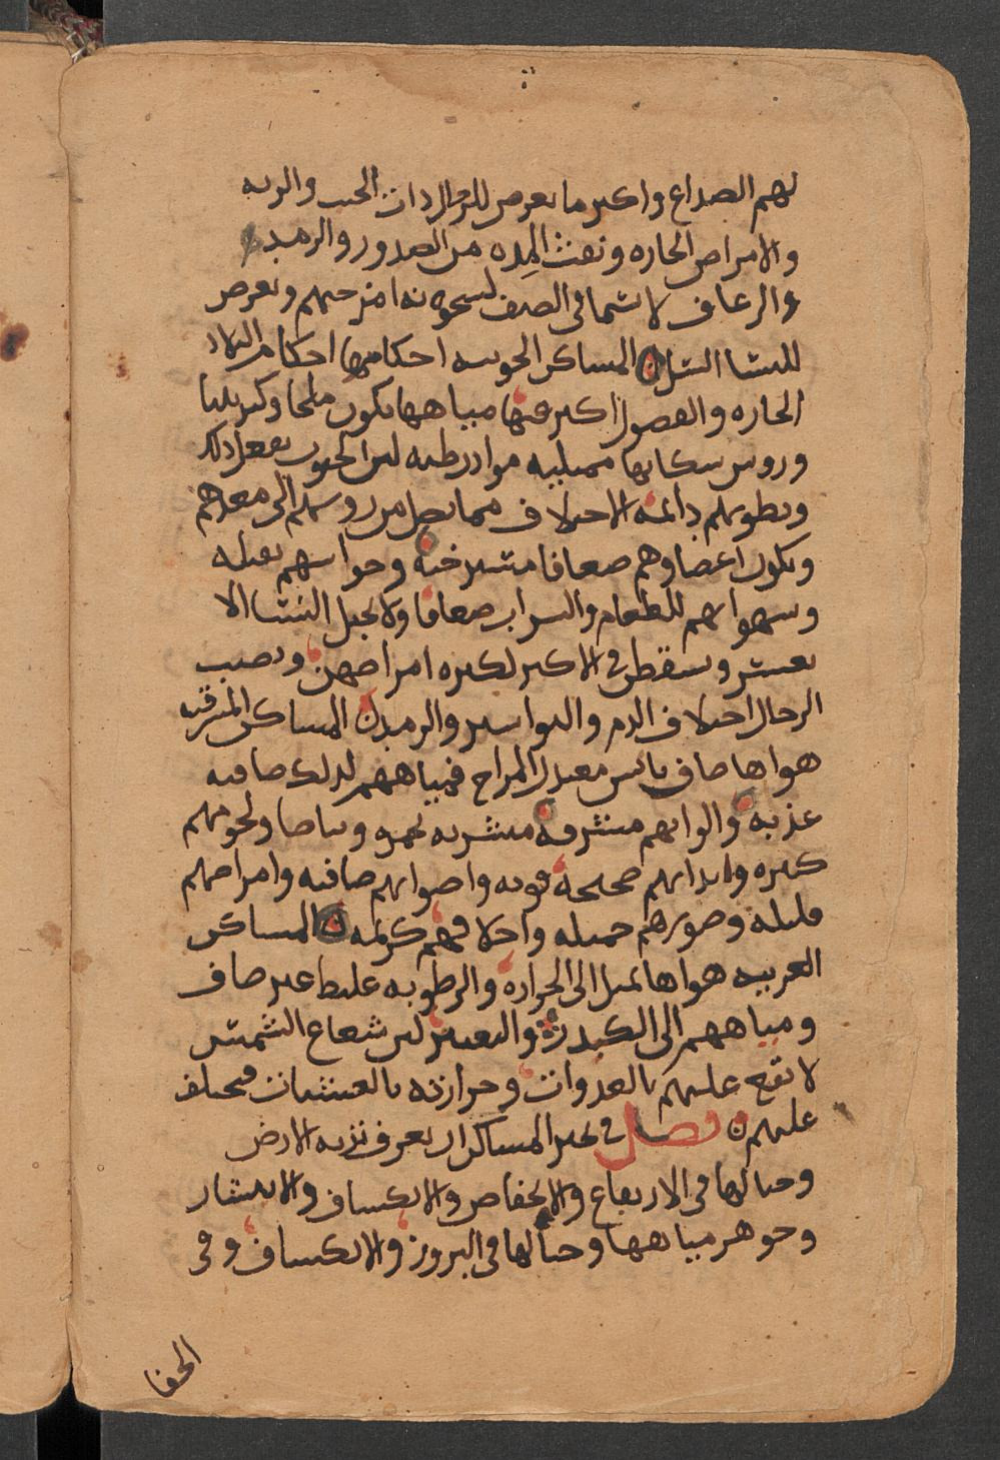 لهم الصداع واكثر ما يعرض للرجال ذات الجنب والريه
والامراض الحاره ونفث المده من الصدور والرمد
والرعاف لاسيما فى الصيف لسخونه امزجتهم ويعرض
للنسا السل المساكن الجنوبيه احكامها احكام البلاد
الحاره والفصول اكثر عنها مياهها تكون ملحا وكبريتيا
وروس سكانها ممتليه مواد رطبه لان الجنوب يفعل ذلك
وبطونهم دائمه الاختلاف مما ينزل من روسهم الى معدهم
وتكون اعضاوهم ضعافا مسترخيه وحواسهم ثقيله
وشهواتهم للطعام والشراب ضعافا ولا تحبل النسا الا
بعسر ويسقطن فى الاكثر لكثره امراضهن ويصيب
الرجال اختلاف الدم والبواسير والرمد المساكن المشرقيه
هواها صاف يابس معتدل المزاج فمياههم لذلك صافيه
عذبه والوانهم مشرقه مشربه حمره وبياضا ولحومهم
كثيره وابدانهم صحيحه قويه واصواتهم صافيه وامراضهم
قليله وصورهم جميله واخلاقهم كريمه المساكن
الغربيه هواها تميل الى الحراره والرطوبه غليظ غير صاف
ومياههم الى الكدره والتغير لان شعاع الشمس
لا تقع عليهم بالغدوات وحرارته بالعشيات فيختلف
عليهم فصل فى تخير المساكن ان يعرف تربه الارض
وحالها فى الارتفاع والانخفاض والانكشاف والاستتار
وجوهر مياهها وحالها فى البروز والانكشاف وفى
الخفا